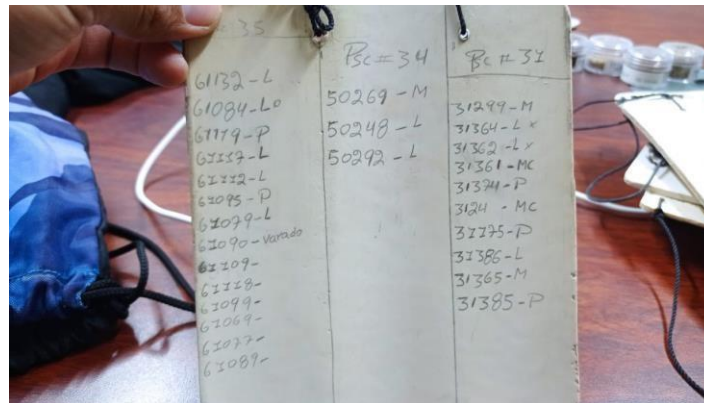 35
61132-L
61084-Lo
61119-P
61117-L
61112-L
61095-P
61079-L
61090-varado
61109-
61118-
61099-
61069-
61077-
61089-
Psc=34
50269-M
50248-L
50292-L
Psc # 31
31299-M
31364-L x
31362-L x
31361-MC
31374-P
3124 - MC
31175-P
31386-L
31365-M
31385-P